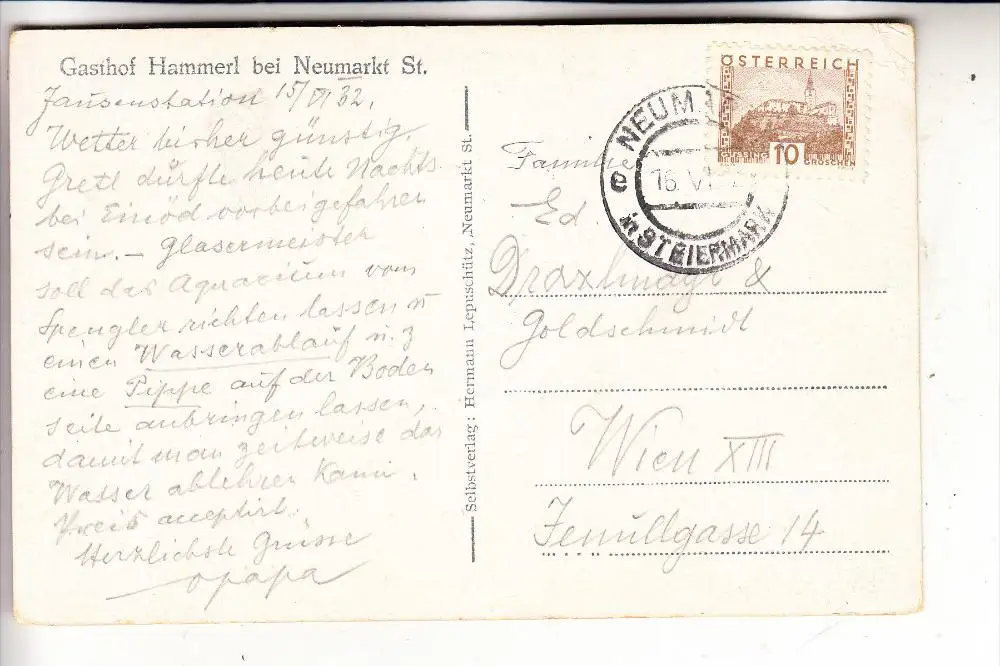 Gasthof Hammerl bei Neumarkt St.
Jausenstation 15/VI 32.
Wetter bisher günstig.
Gretl dürfte heute Nachts
bei Einöd vorbeigefahren
sein. – Glasermeister
soll das Aquarium vom
Spengler richten lassen u
einen Wasserablauf u. z
eine Pippe auf der Boden
seite anbringen lassen,
damit man zeitweise das
Wasser ablehren kann.
Preis acceptirt.
Herzlichste Grüsse
Opapa
Selbstverlag: Hermann Lepuschütz, Neumarkt St.
ÖSTERREICH
10
GROSCHEN
NEUM
16. VI
e
in STEIERMARK
Familie
Ed
Draxlmayr &
Goldschmidt
Wien XIII
Jenullgasse 14